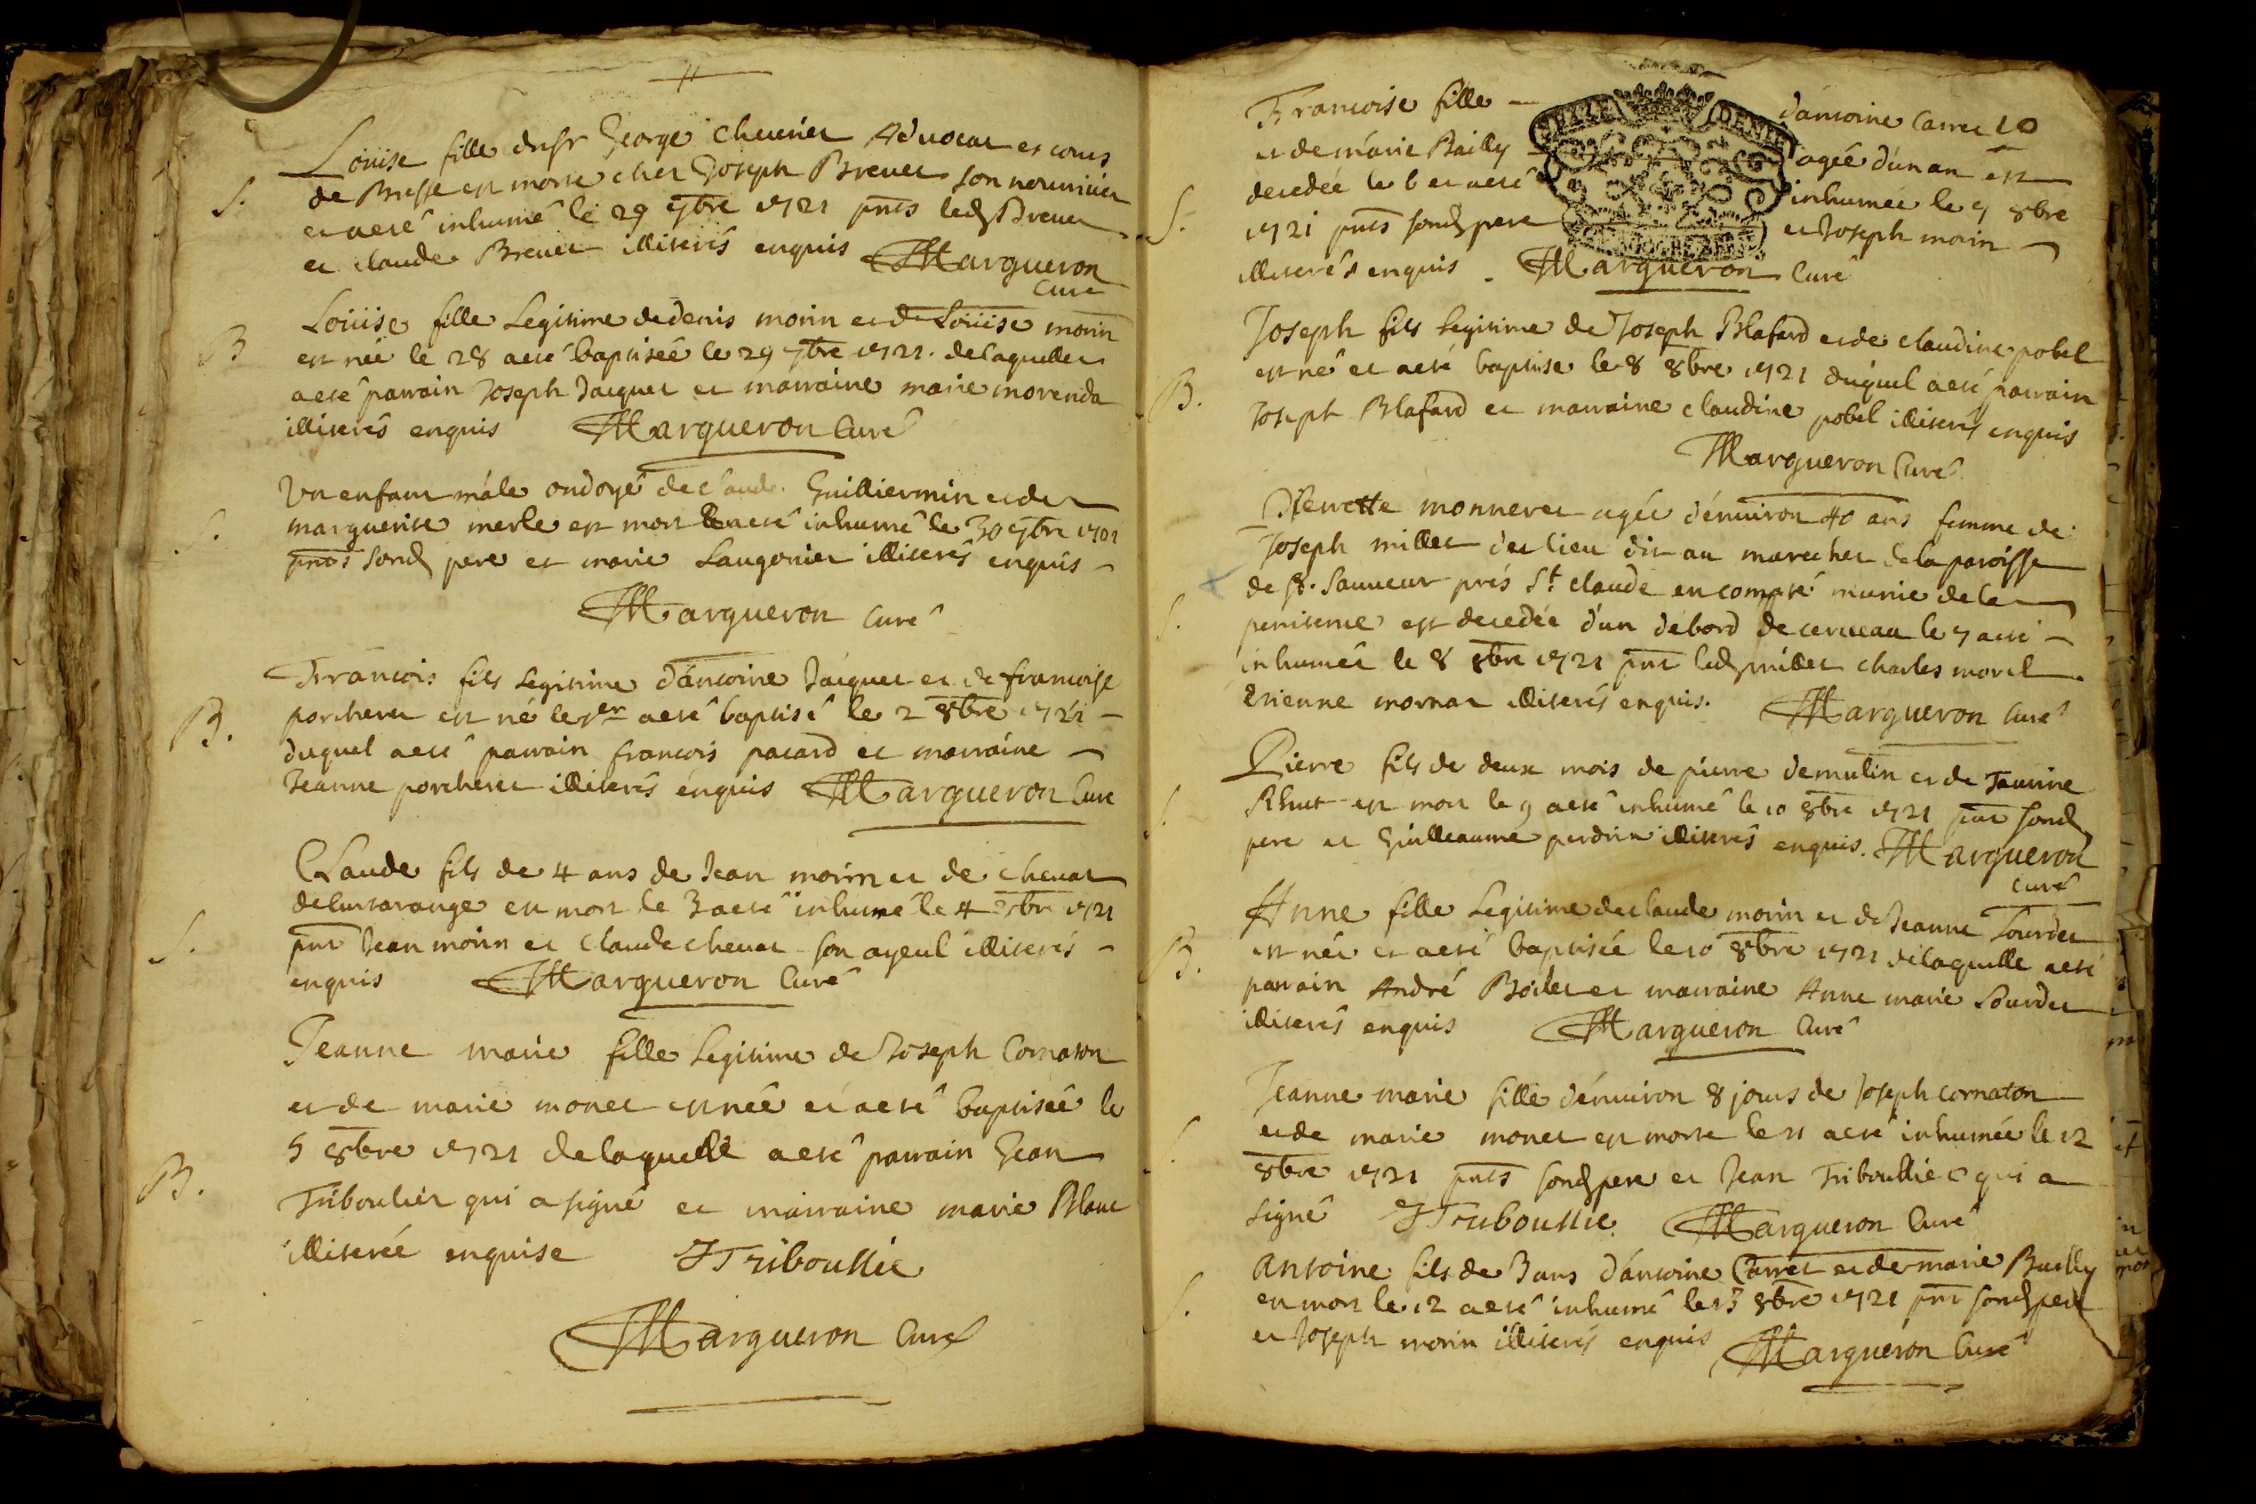 Loüise fille du sr George Chevrier Advocat et cons
de Bresse est morte chez Joseph Brevet son nourricier
S. et a eté inhumé le 29 7bre 1721 pnts led Brevet
et claude Brevet illiterés enquis Margueron
Curé
Loüise fille Legitime de denis morin et de Loüise morin
B est née le 28 a eté baptiseé le 29 7bre 1721. de laquelle
a eté parrain Joseph Jacquet et marraine marie morenda
illiterés enquis Margueron Curé
Un enfant mâle ondoyé de Claude Guilliermin et de
marguerite merle est mort et a eté inhumé le 30 7bre 1721
S.
pnts sond pere et marie Laugonier illiterés enquis
Margueron Curé
Francois fils Legitime d'antoine Jacquet et de francoise
porcheret est né le 1er a eté baptisé le 2 8bre 1721
B.
duquel a eté parrain francois pacard et marraine
Jeanne porcheret illiterés enquis Margueron Curé
Claude fils de 4 ans de Jean morin et de chevat
est mort le 3 a eté inhumé le 4 8bre 1721
S.
pnt Jean morin et Claude chevat son ayeul illiterés
enquis Margueron Curé
Jeanne marie fille Legitime de Joseph Cornaton
et de marie monet est née et a eté baptisée le
5 8bre 1721 de laquelle a eté parrain Jean
B.
Triboulier qui a signé et marraine marie Blanc
illiterée enquise JTriboullie
Margueron Curé
Francoise fille d'antoine Carret 10
et de marie Bailly agée d'un an est
decedée le 6 et a eté inhumée le 7 8bre
S.
1721 pnts sond pere et Joseph morin
illiterés enquis Margueron Curé
Joseph fils Legitime de Joseph Blafard et de claudine pobel
est né et a eté baptise le 8 8bre 1721 duquel a eté parrain
B.
Joseph Blafard et marraine claudine pobel illiterés enquis
Margueron Curé
monneret agée d'environ 40 ans femme de
Joseph millet du lieu dit au marechet de la paroisse
de St. Sauveur prés St claude en compté munie de la
S.
penitence est decedée d'un debord de cerveau le 7 a eté
inhumée le 8 8bre 1721 pnt led millet charles morel
etienne mornat illiterés enquis. Margueron Curé
Pierre fils de deux mois de pierre demulin et de Taurine
S.
Rhut est mort le 9 a eté inhumé le 10 8bre 1721 pnt sond
pere et Guilleaume perdrix illiterés enquis. Margueron
Curé
Anne fille Legitime de claude morin et de Jeanne Sourdet
est née et a eté baptisée le 10 8bre 1721 de laquelle a eté
B.
parrain André et marraine Anne marie Sourdet
illiterés enquis Margueron Curé
Jeanne marie fille d'environ 8 jours de Joseph cornaton
S.
et de marie monet est morte le 11 a eté inhumée le 12
8bre 1721 pnts sond pere et Jean Triboullier qui a
signé JTriboullie Margueron Curé
Antoine fils de 3 ans d'antoine Carret et de marie Bailly
S.
est mort le 12 a eté inhumé le 13 8bre 1721 pnt sond pere
et Joseph morin illiterés enquis Margueron Curé